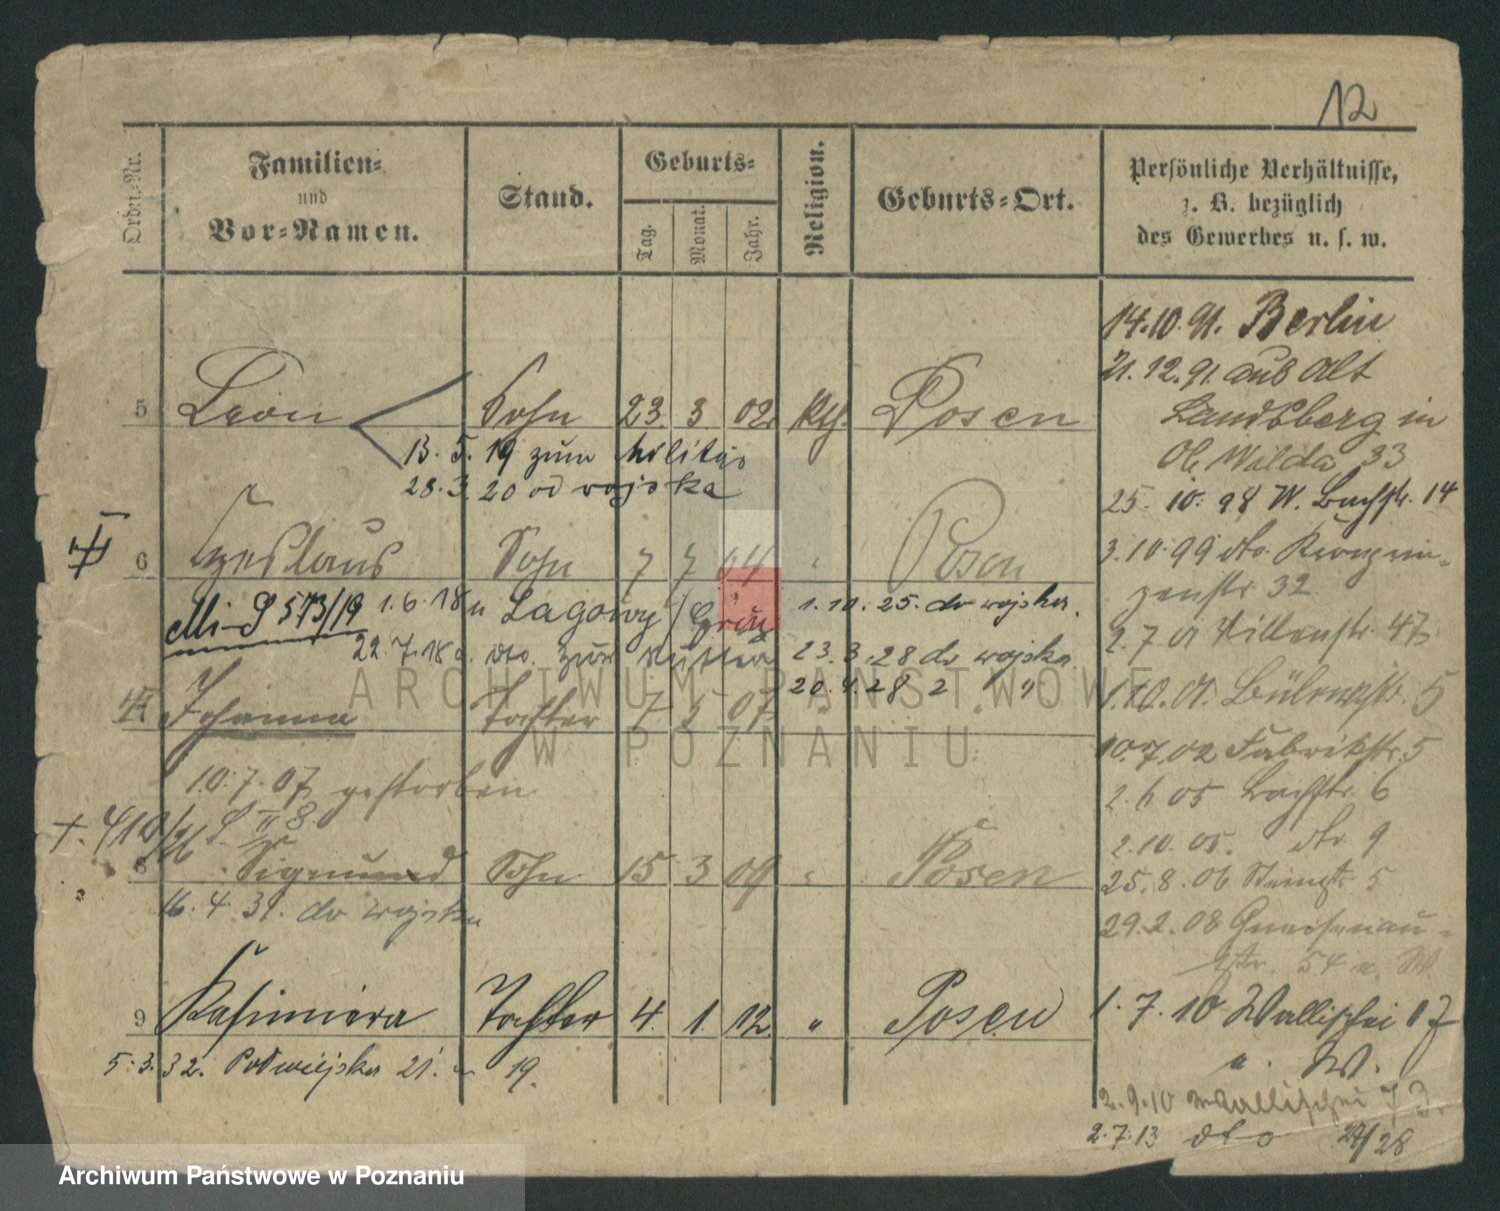 12
Ordn.-Nr.
Familien-
und
Vor-Namen.
Stand.
Geburts-
Tag.
Monat.
Jahr.
Religion.
Geburts-Ort.
Persönliche Verhältnisse,
z. B. bezüglich
des Gewerbes u. s. w.
5 Leon Sohn 23. 3 02. kth. Posen
13. 5. 19 zum Militär
28. 3. 20 od wojska
6 Czeslaus Sohn 7 7 04 " Posen
1.6.18 n Lagowy /
22.7.18 dto. zur Mutter
1.10.25. do wojska.
23.3.28 do wojska.
20.4.28 2 "
Johanna Tochter 7 5 07 "
10.7.07 gestorben
8 Sigmund Sohn 15 3 09 " Posen
16.4.31. do wojska
9 Kasimiera Tochter 4. 1. 12. " Posen
5.3.32. Podwiejska 21. 19.
14.10.91. Berlin
21.12.91. aus Alt
Landsberg in
Ob. Wilda 33
25. 10. 98 W. Bachstr. 14
3.10.99 dto. Kronprin-
zenstr 32
2.7.01 47
1.10.01. Bülowstr. 5
10.7.02 Fabrikstr. 5
2.6.05 Bachstr. 6
2.10.05. dto 9
25.8.06 Steinstr 5
29.2.08 Gneisenau-
str. 54 u. W.
1.7.10 Wallischei 17
u. W.
2.9.10 Wallischei 73.
2.7.13 dto 27/28
ARCHIWUM PAŃSTWOWE
W POZNANIU
Archiwum Państwowe w Poznaniu